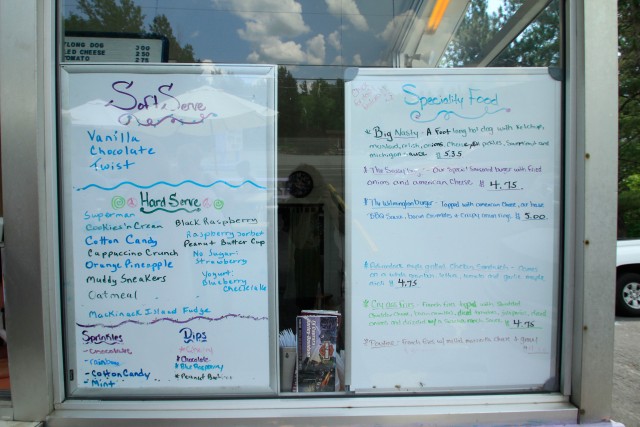 LONG DOG 300
LED CHEESE 250
TOMATO 275
Soft Serve
Vanilla
Chocolate
Twist
Hard Serve
Superman
Cookies'n Cream
Cotton Candy
Cappaccino Crunch
Orange Pineapple
Muddy Sneakers
Oatmeal
Mackinack Island Fudge
Black Raspberry
Raspberry Sorbet
Peanut Butter Cup
No Sugar:
Strawberry
Yogurt:
Blueberry
Cheesecake
Sprinkles
- Chocolate
- rainbow
- Cotton Candy
- Mint
Dips
* Cherry
* Chocolate
* Blue Raspberry
* Peanut Butter
Speciality Food
* Big Nasty - A Foot long hot dog with Ketchup,
mustard, relish, onions, pickles, Sauerkraut and
michigan sauce $ 5.35
Our Special Seasoned burger with fried
onions and american Cheese $ 4.75
* The Wilmington Burger - Topped with american Cheese, our base
BBQ Sauce, bacon crumbles + crispy onion rings. $ 5.00
grilled Cheese Sandwich -
on a white lettuce, tomato and garlic
mayo $ 4.75
* Grease Fries - French Fries topped with shredded
cheddar cheese, diced
onions and $ 4.75
* Poutine: French Fries w/ melted mozzarella cheese & gravy